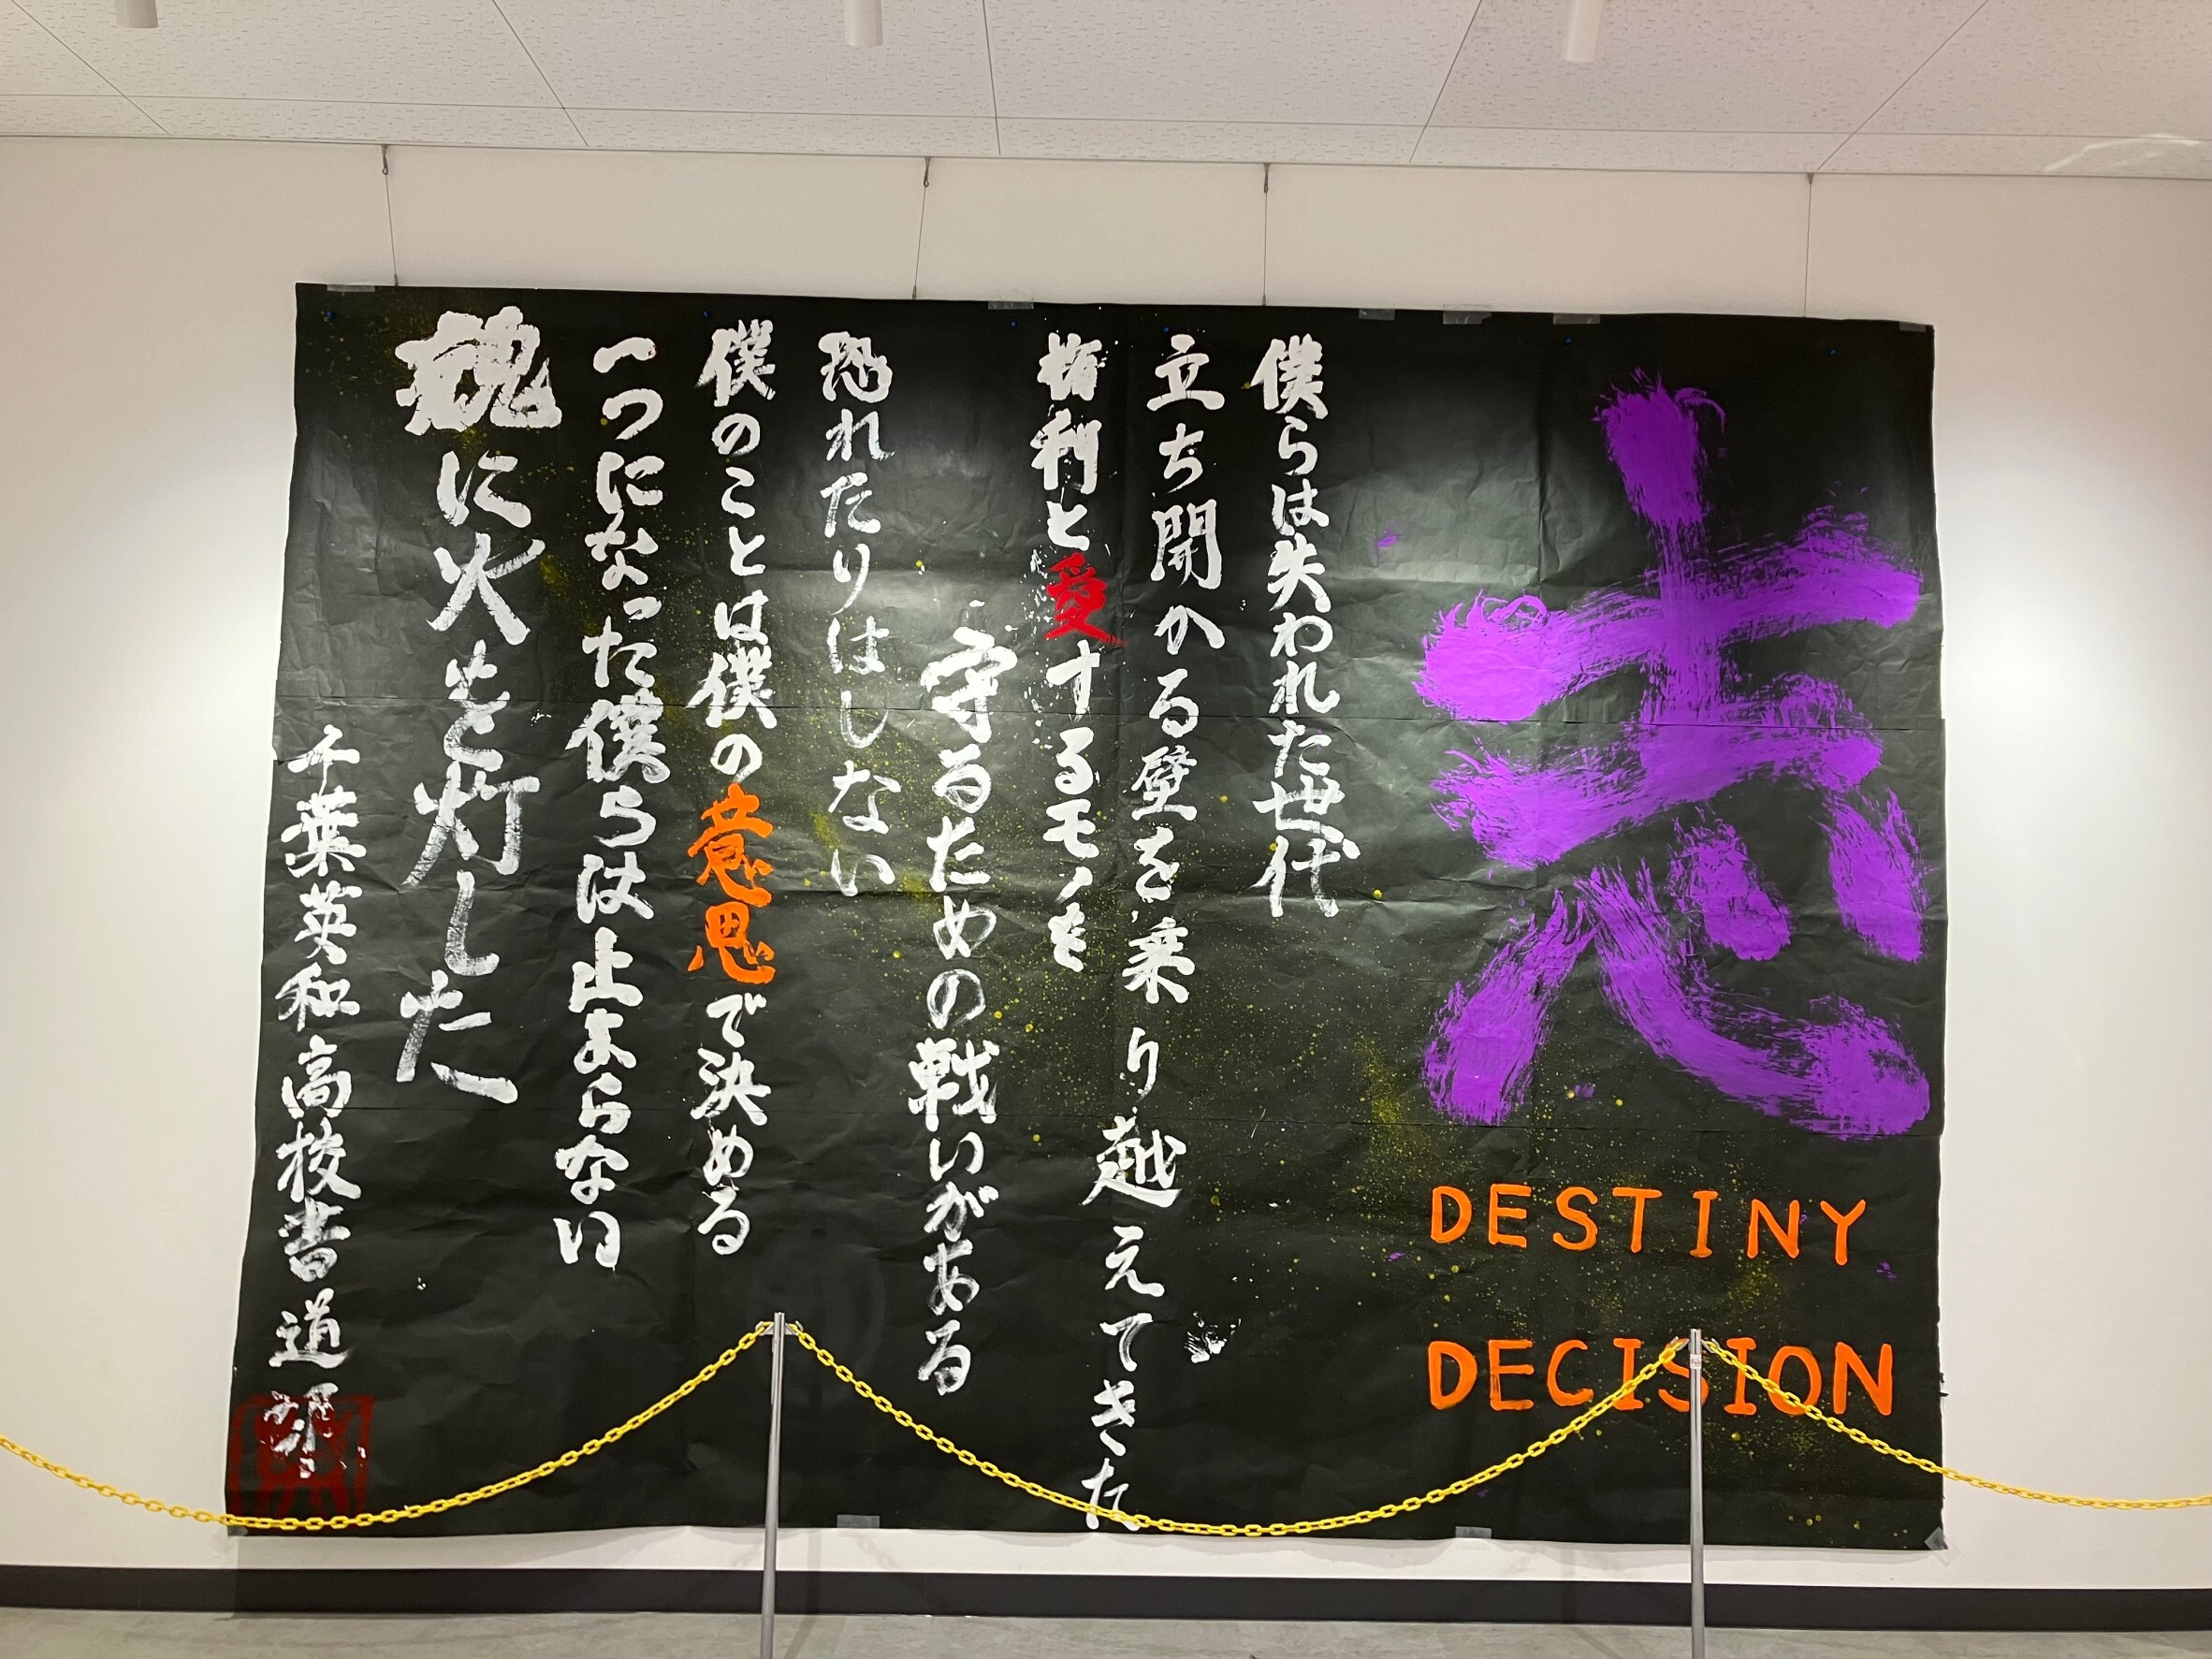 志
DESTINY
DECISION
僕らは失われた世代
立ち開かる壁を乗り越えてきた
権利と愛するモノを
守るための戦いがある
恐れたりはしない
僕のことは僕の意思で決める
一つになった僕らは止まらない
魂に火を灯した
千葉英和高校書道部